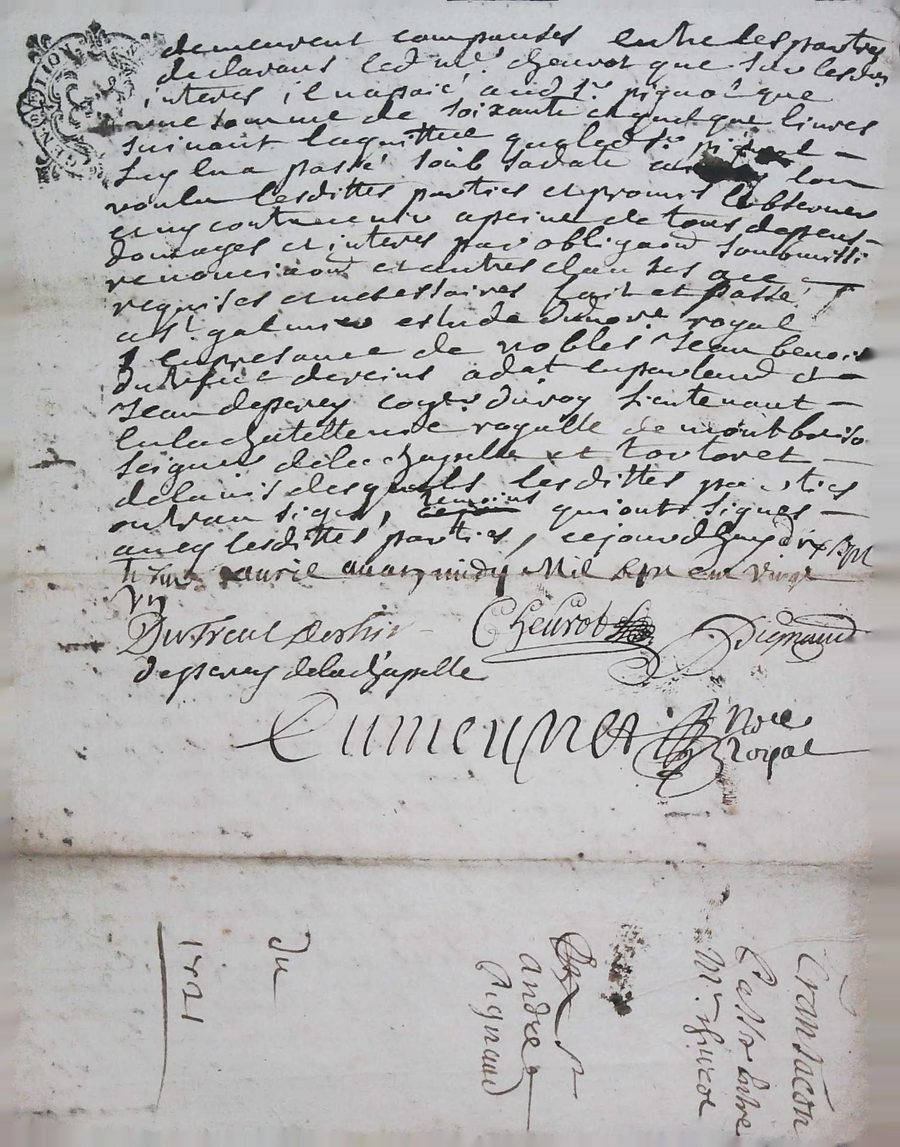 GENS TION
demeurent compansés entre les parties
declarans led. mr. cheurot que sur lesd.
interes il na paié aud. sr. pignod que
une somme de soixante et quelque livres
suivant la quittee que led. sr.
luy en a passé soub sadate
voulu lesdittes parties et promis l'observer
et ny contrevenir a peine de tous depens
domages et interes par obligaons soubmissi
renonciaons et autres clauses ace
requises et nessessaires fait et passé
a st. galmier estude du nore. royal
en presance de nobles Jean benoist
dutreuil derins adat en parlend et
Jean desperey coyer du roy lieutenant
en la chatellenie royalle de montbriso
seigneur de la chapelle et tortoret
de lavis desquels lesdittes parties
ont signé, temoins qui ont signés
avecq lesdittes parties, cejourdhuy dix sept
avril avant midy Mil sept cen vingt
un
Dutreul derhins Cheurot Pignaud
desperey delachapelle
Cumeynet Nore
Royal
Transaćon
Passé entre
Mre. cheurot
Et Sr
andré
Pignaud
Du
1721